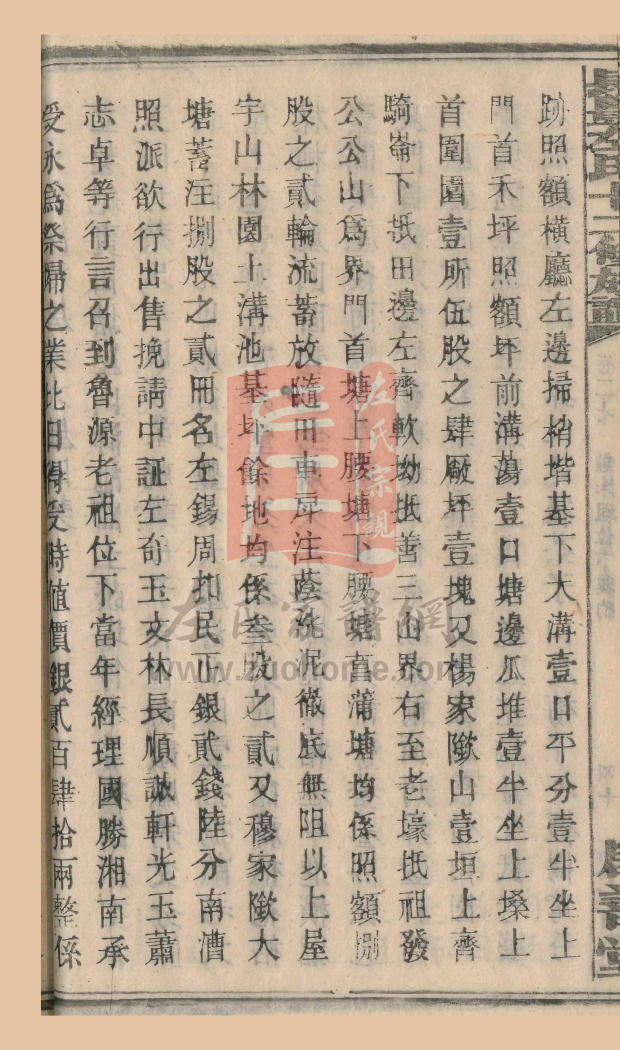 跡照額橫廳左邊掃梢堦基下大溝壹口平分壹半坐上
門首禾坪照額坪前溝蕩壹口塘邊瓜堆壹半坐上㙡上
首圍園壹所伍股之肆厰坪壹塊又楊家隞山壹垣上齊
騎崙下抵田邊左齊軟坳抵善三山界右至老壕抵祖發
公公山爲界門首塘上腰塘下腰塘菖蒲塘均係照額捌
股之貳輪流蓄放隨田車戽注蔭洗泥徹底無阻以上屋
宇山林園土溝池基圤餘地均係叁股之貳又穆家隞大
塘蓄注捌股之貳冊名左錫周扣民正銀貳錢陸分南漕
照派欲行出售挽請中証左奇玉文林長順誠軒光玉蕭
志卓等行言召到魯源老祖位下當年經理國勝湘南承
受永爲祭掃之業比日得受時値價銀貳百肆拾兩整係
左氏十二修族譜
卷二十七
四十
左氏宗親
左氏家譜網
www.zuohome.com